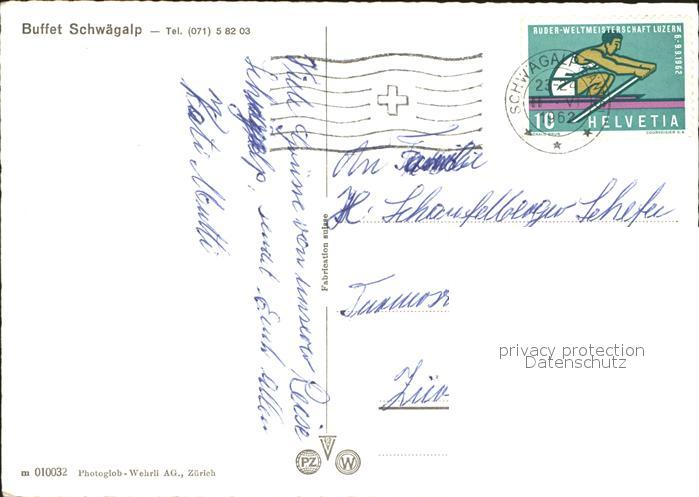 Buffet Schwägalp — Tel. (071) 5 82 03
Viele Grüsse von unserer Reise
Schwägalp. sendet Euch allen
Mutti
Fabrication suisse
RUDER-WELTMEISTERSCHAFT LUZERN
6.-9.9.1962
SCHWÄGALP
1962
10 HELVETIA
COURVOISIER S.A.
An Familie
H. Schaufelberger Schefer
Zür
privacy protection
Datenschutz
PZ W
m 010032 Photoglob-Wehrli AG., Zürich